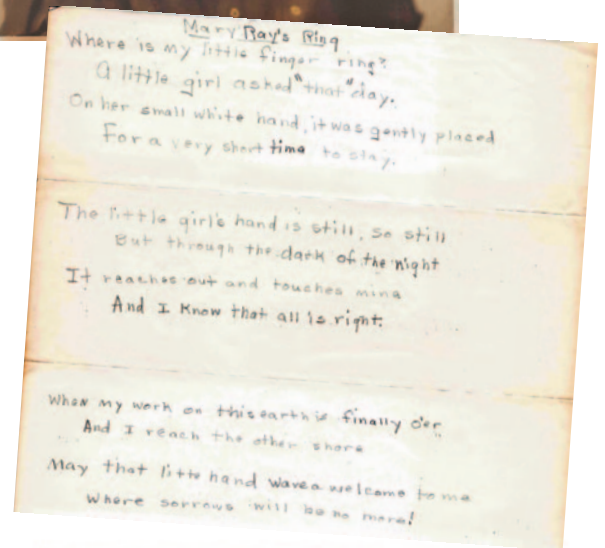 Mary Ray's Ring
Where is my little finger ring?
A little girl asked "that" day.
On her small white hand, it was gently placed
For a very short time to stay.
The little girl's hand is still, so still
But through the dark of the night
It reaches out and touches mine
And I know that all is right.
When my work on this earth is finally o'er
And I reach the other shore
May that little hand wave a welcome to me
Where sorrows will be no more!